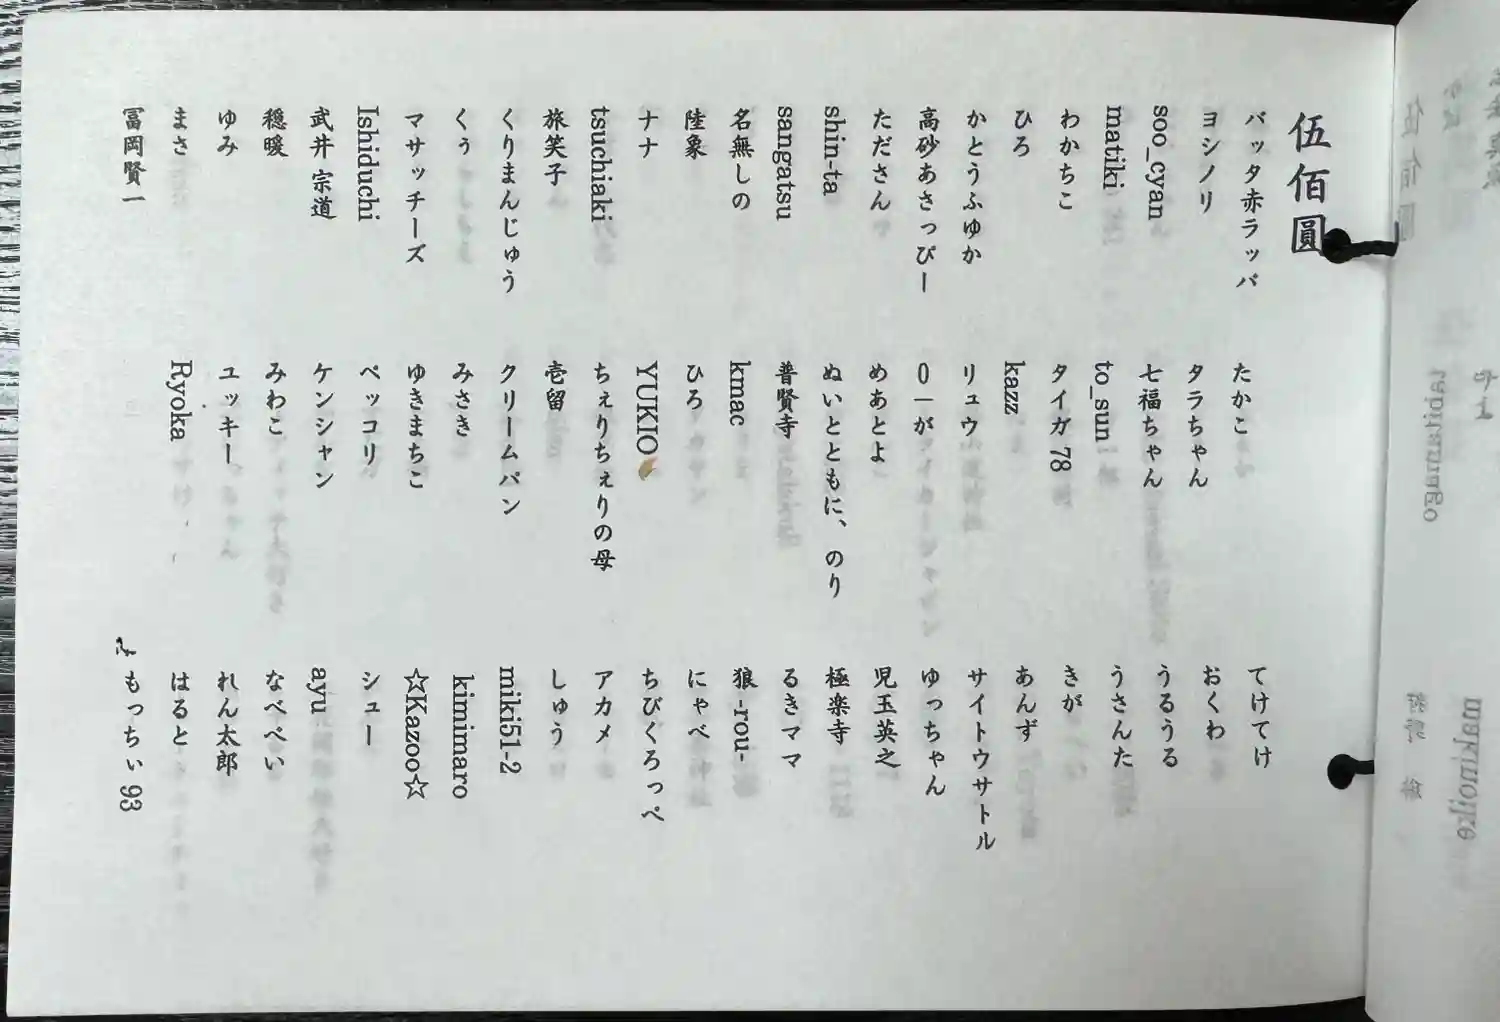 伍佰圓
バッタ赤ラッパ
ヨシノリ
soo_cyan
matiki
わかちこ
ひろ
かとうふゆか
高砂あさっぴー
たださん
shin-ta
sangatsu
名無しの
陸象
ナナ
tsuchiaki
旅笑子
くりまんじゅう
くぅ
マサッチーズ
Ishiduchi
武井 宗道
穏暖
ゆみ
まさ
冨岡賢一
たかこ
タラちゃん
七福ちゃん
to_sun
タイガ 78
kazz
リュウ
0－が
めあとよ
ぬいとともに、のり
普賢寺
kmac
ひろ
YUKIO
ちぇりちぇりの母
壱留
クリームパン
みさき
ゆきまちこ
ペッコリ
ケンシャン
みわこ
ユッキー
Ryoka
てけてけ
おくわ
うるうる
うさんた
きが
あんず
サイトウサトル
ゆっちゃん
児玉英之
極楽寺
るきママ
狼 -rou-
にゃべ
ちびくろっぺ
アカメ
しゅう
miki51-2
kimimaro
☆Kazoo☆
シュー
ayu
なべぺい
れん太郎
はると
もっちぃ 93